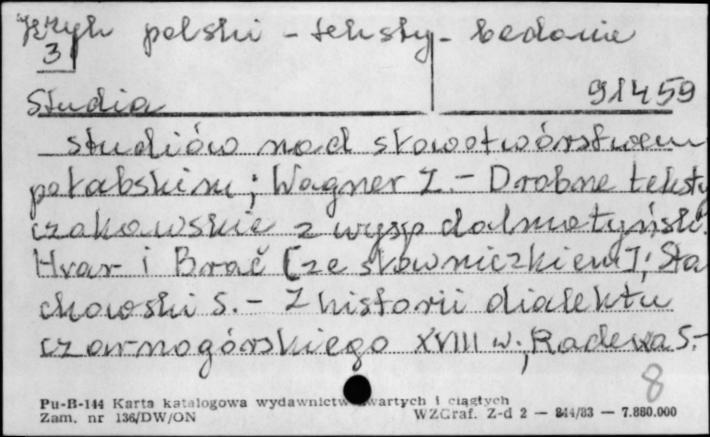 Język polski - teksty - badanie
3
Studia
91459
studiów nad słowotwórstwem
połabskim; Wagner Z. - Drobne teksty
czakawskie z wysp dalmatyńsk.
Hvar i Brač [ze słowniczkiem]; Sta
chowski S. - Z historii dialektu
czarnogórskiego XVIII w.; Radewa S. -
8
Pu-B-144 Karta katalogowa wydawnictw zwartych i ciągłych
Zam. nr 136/DW/ON WZGraf. Z-d 2 — 844/83 — 7.880.000